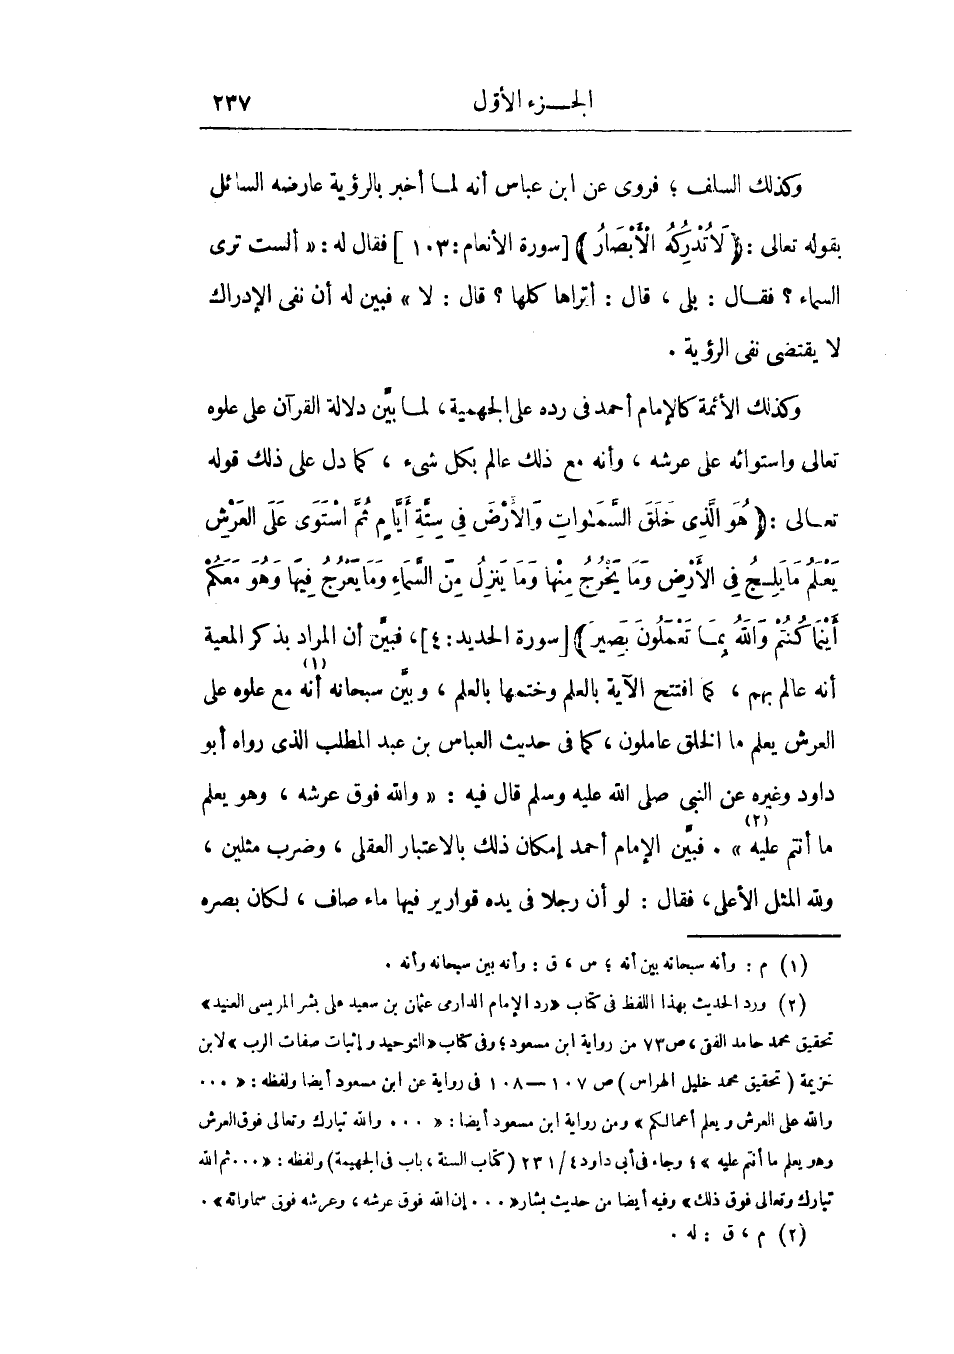 الجـــزء الأوّل ٢٣٧
وكذلك السلف ؛ فروى عن ابن عباس أنه لمـا أخبر بالرؤية عارضه السائل
بقوله تعالى : ﴿ لَا تُدْرِكُهُ الْأَبْصَارُ ﴾ [ سورة الأنعام : ١٠٣ ] فقال له : « ألست ترى
السماء ؟ فقـال : بلى ، قال : أتراها كلها ؟ قال : لا » فبين له أن نفى الإدراك
لا يقتضى نفى الرؤية .
وكذلك الأئمة كالإمام أحمد فى رده على الجهمية ، لمـا بيَّن دلالة القرآن على علوه
تعالى واستوائه على عرشه ، وأنه مع ذلك عالم بكل شىء ، كما دل على ذلك قوله
تعـالى : ﴿ هُوَ الَّذِى خَلَقَ السَّمَٰوَاتِ وَالْأَرْضَ فِى سِتَّةِ أَيَّامٍ ثُمَّ اسْتَوَى عَلَى الْعَرْشِ
يَعْلَمُ مَا يَلِجُ فِى الْأَرْضِ وَمَا يَخْرُجُ مِنْهَا وَمَا يَنزِلُ مِنَ السَّمَاءِ وَمَا يَعْرُجُ فِيهَا وَهُوَ مَعَكُمْ
أَيْنَمَا كُنتُمْ وَاللَّهُ بِمَا تَعْمَلُونَ بَصِيرٌ ﴾ [ سورة الحديد : ٤ ] ، فبيَّن أن المراد بذكر المعية
أنه عالم بهم ، كما افتتح الآية بالعلم وختمها بالعلم ، وبيَّن سبحانه أنه (١) مع علوه على
العرش يعلم ما الخلق عاملون ، كما فى حديث العباس بن عبد المطلب الذى رواه أبو
داود وغيره عن النبى صلى الله عليه وسلم قال فيه : « والله فوق عرشه ، وهو يعلم
ما أنتم عليه (٢) » . فبيَّن الإمام أحمد إمكان ذلك بالاعتبار العقلى ، وضرب مثلين ،
ولله المثل الأعلى ، فقال : لو أن رجلا فى يده قوارير فيها ماء صاف ، لكان بصره
(١) م : وأنه سبحانه بين أنه ؛ س ، ق : وأنه بين سبحانه وأنه .
(٢) ورد الحديث بهذا اللفظ فى كتاب «رد الإمام الدارمى عثمان بن سعيد على بشر المريسى العنيد»
تحقيق محمد حامد الفقى ، ص ٧٣ من رواية ابن مسعود ؛ وفى كتاب «التوحيد وإثبات صفات الرب» لابن
خزيمة ( تحقيق محمد خليل الهراس ) ص ١٠٧ — ١٠٨ فى رواية عن ابن مسعود أيضا ولفظه : « ...
والله على العرش ويعلم أعمالكم » ومن رواية ابن مسعود أيضا : « ... والله تبارك وتعالى فوق العرش
وهو يعلم ما أنتم عليه » ؛ وجاء فى أبى داود ٤/ ٢٣١ (كتاب السنة ، باب فى الجهيمة) ولفظه : «... ثم الله
تبارك وتعالى فوق ذلك» وفيه أيضا من حديث بشار «... إن الله فوق عرشه ، وعرشه فوق سماواته» .
(٢) م ، ق : له .